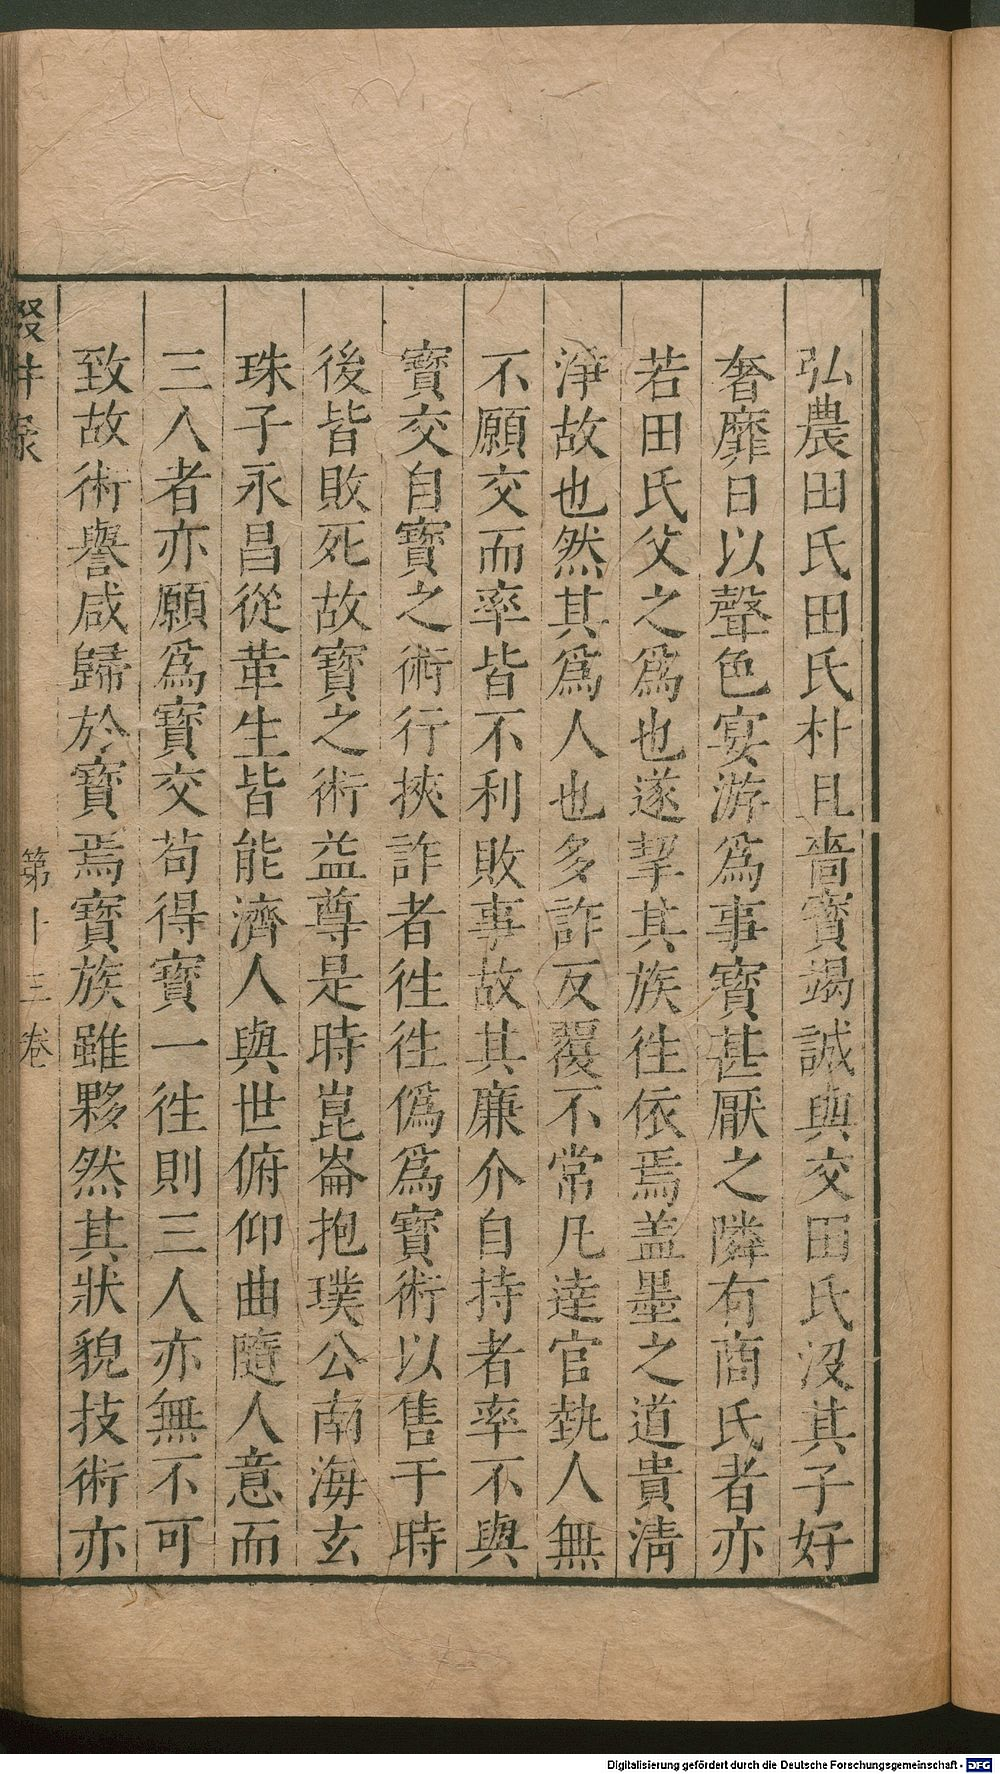 弘農田氏田氏朴且嗇寳竭誠與交田氏沒其子好
奢靡日以聲色宴游爲事寳甚厭之隣有商氏者亦
若田氏父之爲也遂挈其族徃依焉盖墨之道貴清
淨故也然其爲人也多詐反覆不常凡達官埶人無
不願交而率皆不利敗事故其廉介自持者率不與
寳交自寳之術行挾詐者徃徃僞爲寳術以售于時
後皆敗死故寳之術益尊是時崑崙抱璞公南海玄
珠子永昌從革生皆能濟人與世俯仰曲隨人意而
三人者亦願爲寳交苟得寳一徃則三人亦無不可
致故術譽咸歸於寳焉寳族雖夥然其狀貌技術亦
第十三卷
Digitalisierung gefördert durch die Deutsche Forschungsgemeinschaft - DFG